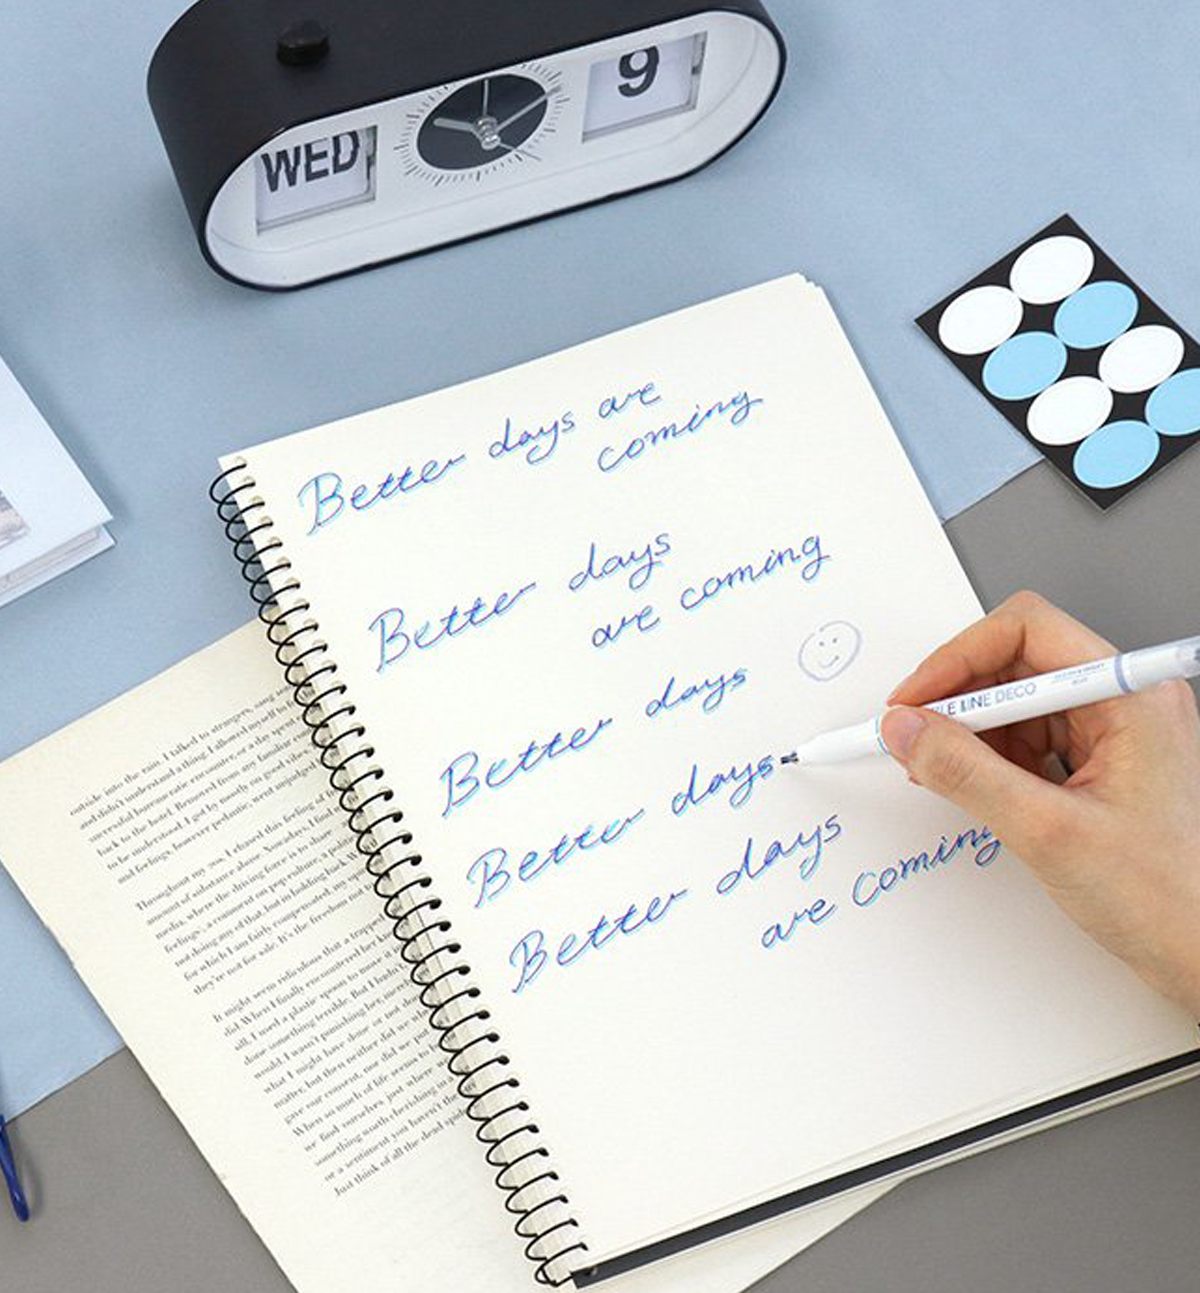 WED
9
Better days are
coming
Better days
are coming
Better days
Better days
Better days
are coming
LE LINE DECO
outside into the rain. I talked to strangers, sang
and didn't understand a thing. I allowed myself to
successful bureaucratic encounter, or a day spent
back to the hotel. Removed from any familiar
to be understood, I got by mostly on good vibes.
and feelings, however pedantic, went unjudged.
Throughout my 20s, I chased this feeling of
amount of substance alone. Some days, I find
media, where the driving force is to share
feelings', a comment on pop culture,
not doing any of that, but in holding back
for which I am fairly compensated, my
they're not for sale. It's the freedom not
It might seem ridiculous that a trapped
did. When I finally encountered her
sill, I used a plastic spoon to move it
done something terrible. But I hadn't
would. I wasn't punishing her, merely
what I might have done or not done
matter, but then neither did we
gave our consent, nor did we put
When so much of life seems to
we find ourselves just where
something worth cherishing in a
or a sentiment you haven't
Just think of all the dead